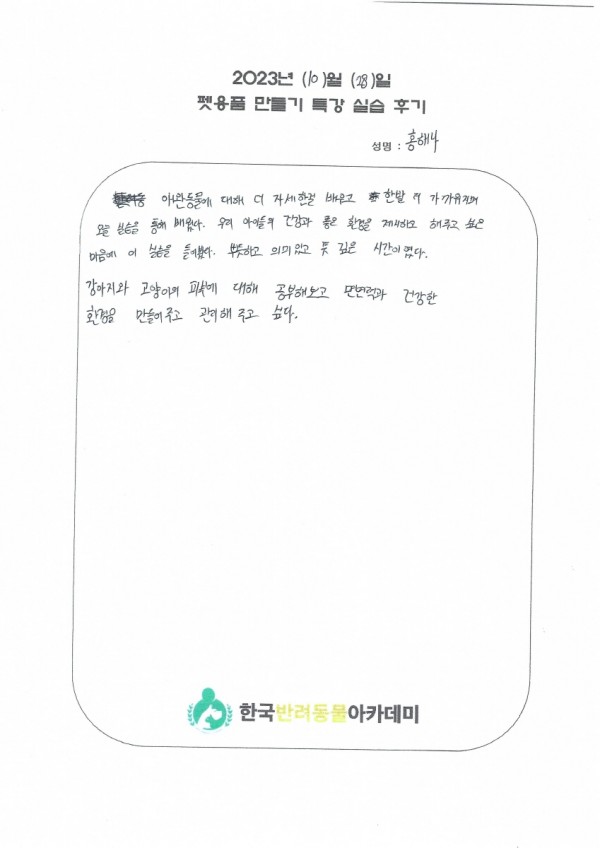 2023년 (10)월 (28)일
펫용품 만들기 특강 실습 후기
성명 : 홍해나
에 대해 더 자세한걸 배우고 한발 더 가까워지며
오늘 실습을 통해 배웠다. 우리 아이들의 건강과 좋은 환경을 제시하고 해주고 싶은
마음에 이 실습을 들어봤다. 뿌듯하고 의미있고 뜻 깊은 시간이였다.
강아지와 고양이의 피부에 대해 공부해보고 면변력과 건강한
환경을 만들어주고 관리해 주고 싶다.
한국반려동물아카데미